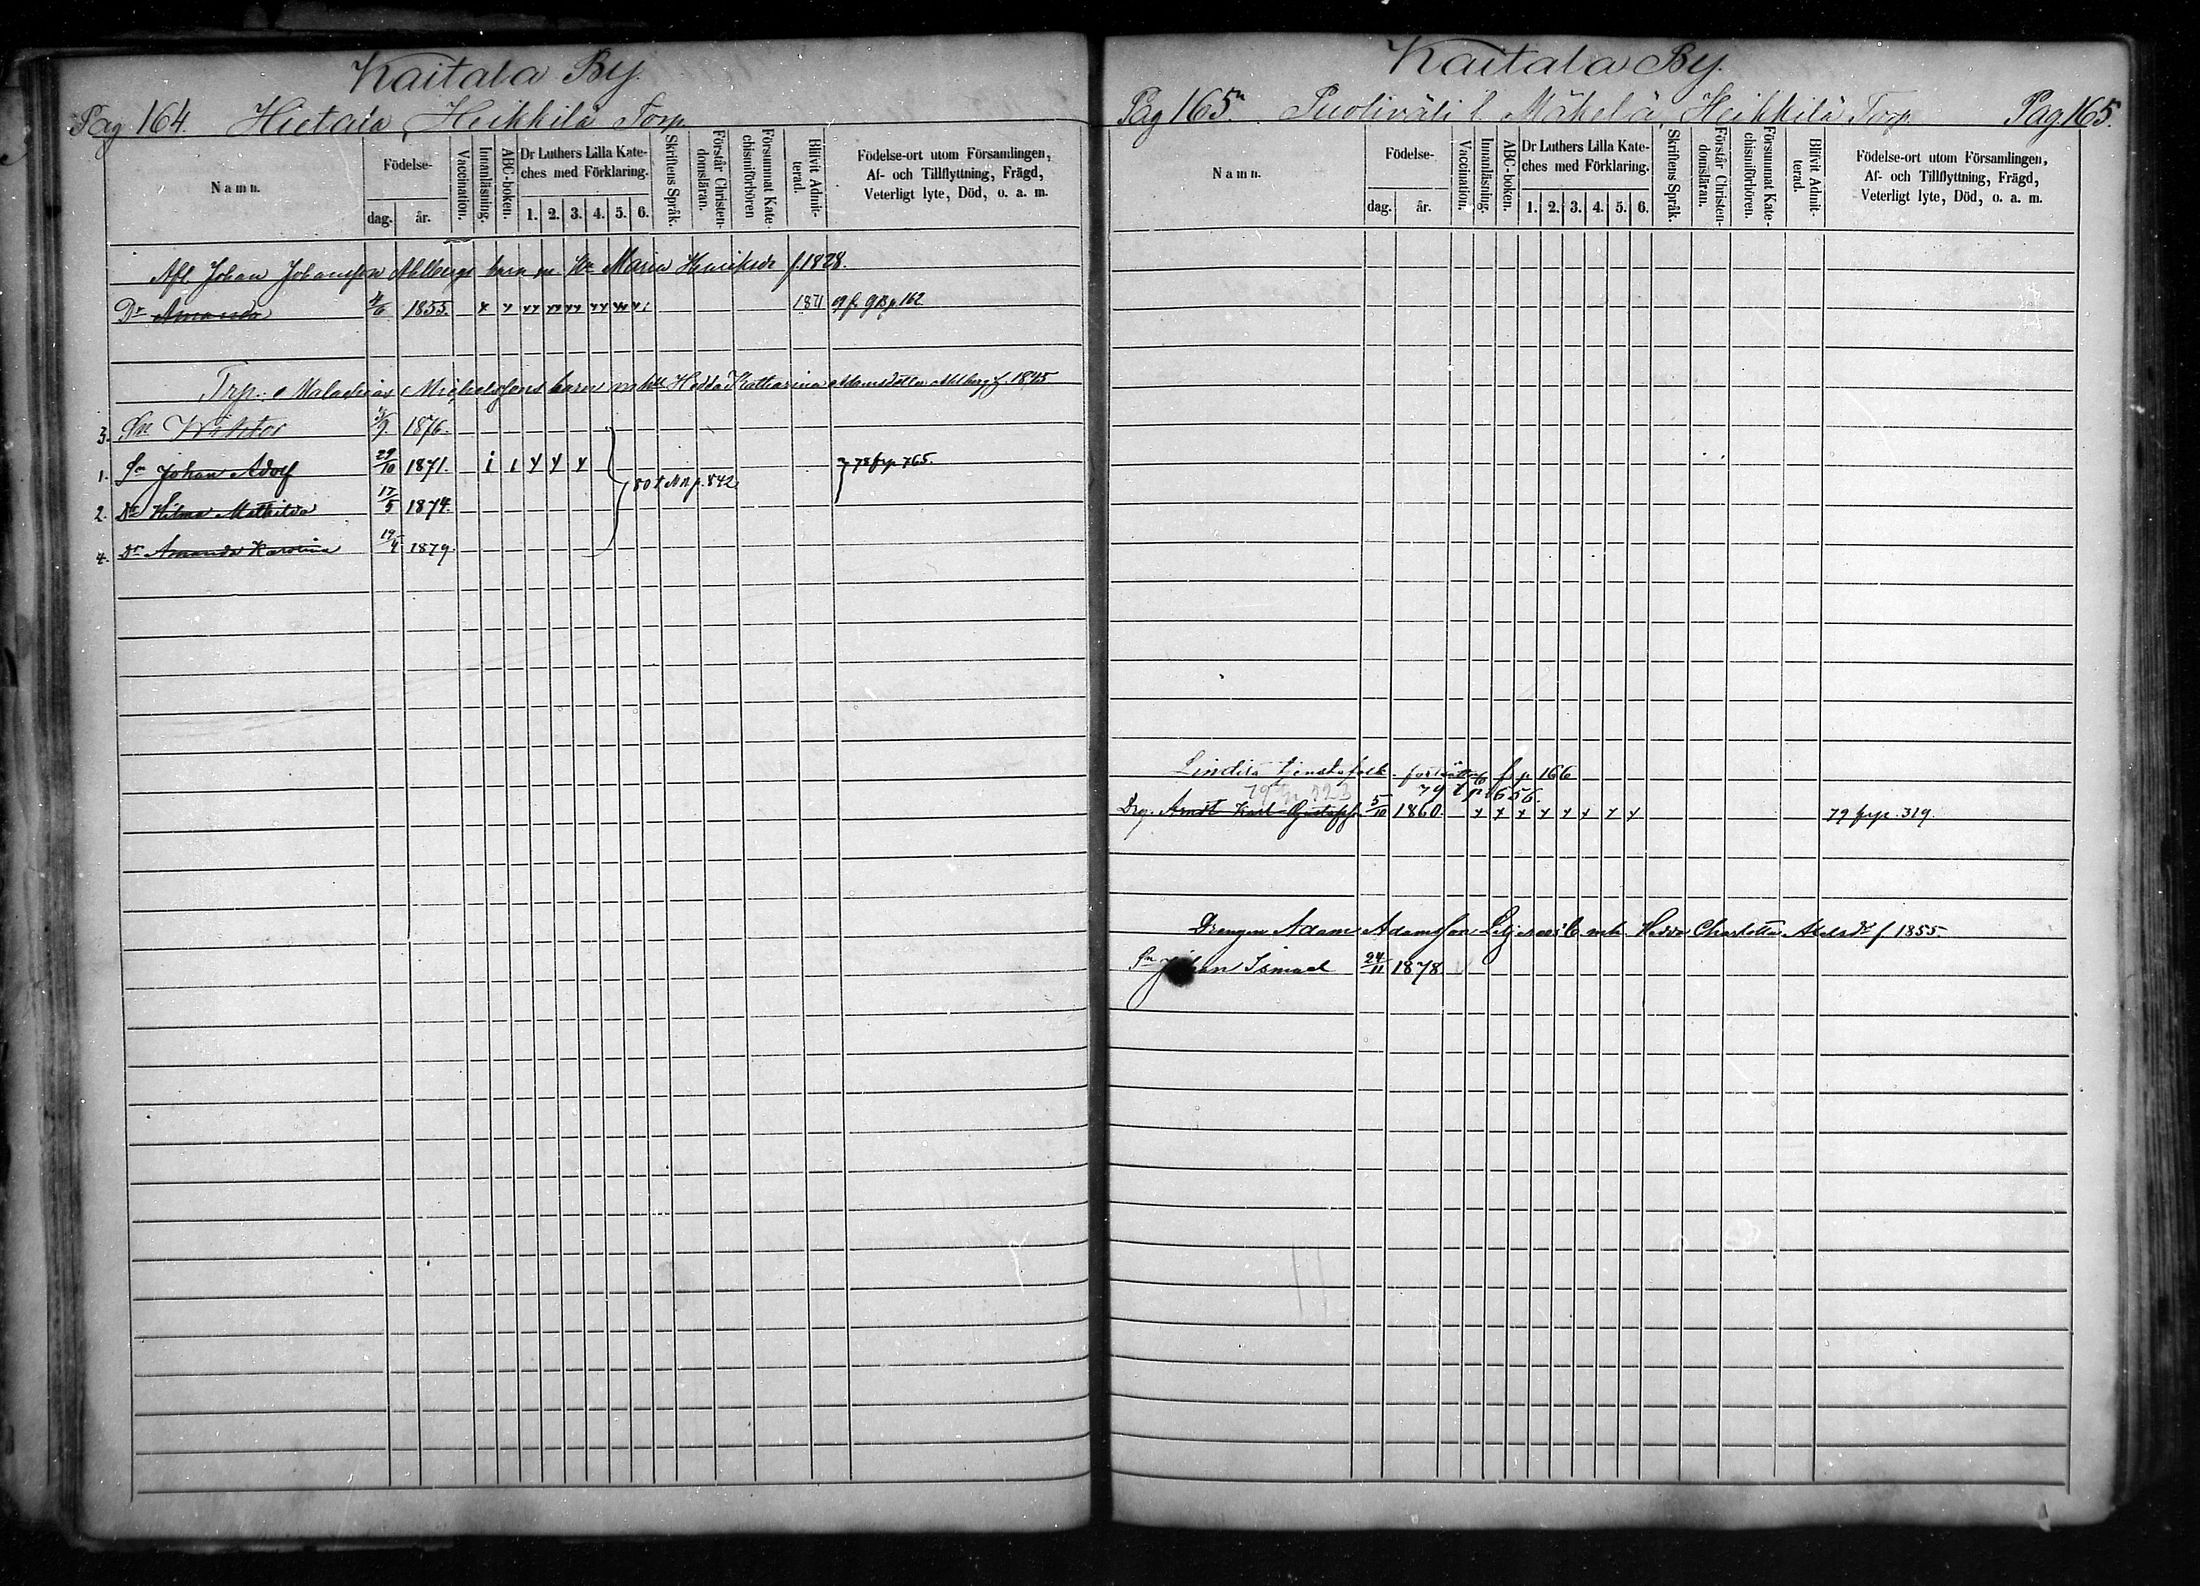 Kaitala By.
Pag 164. Hietala, Heikkilä Torp
Namn. Födelse- dag. år. Vaccination. Innanläsning. ABC-boken. Dr Luthers Lilla Kateches med Förklaring. 1. 2. 3. 4. 5. 6. Skriftens Språk. Förstår Christendomsläran. Försummat Katechismiförhören Blifvit Admitterad. Födelse-ort utom Församlingen, Af- och Tillflyttning, Frägd, Veterligt lyte, Död, o. a. m.
Afl. Johan Johansson Ahlbergs barn m. Maria Henriksdr f. 1828.
Dr Amanda 4/6 1855. 1871 p 162
Trp. Malachias Michelssons barn m h Hedda Katharina Adamsdotter Ahlberg f. 1845
3. Sn Wiktor 9. 1876.
1. Sn Johan Adolf 29/10 1871. 78 frp 765.
80 p. 842
2. Dr Hilma Mathilda 17/5 1874.
4. Dr Amanda Karolina 19/4 1879.
Kaitala By.
Pag 165. Puoliväli l. Mäkelä, Heikkilä Torp. Pag. 165.
Namn. Födelse- dag. år. Vaccination. Innanläsning. ABC-boken. Dr Luthers Lilla Kateches med Förklaring. 1. 2. 3. 4. 5. 6. Skriftens Språk. Förstår Christendomsläran. Försummat Katechismiförhören. Blifvit Admitterad. Födelse-ort utom Församlingen, Af- och Tillflyttning, Frägd, Veterligt lyte, Död, o. a. m.
tjenstefolk fr p 166
79 t p 656.
Drg. Arndt Karl Gustafss. 5/10 1860. 79 frp. 319.
Drengen Adam Adamsson m h Hedda Charlotta f 1855.
Sn Johan Ismael 24/11 1878